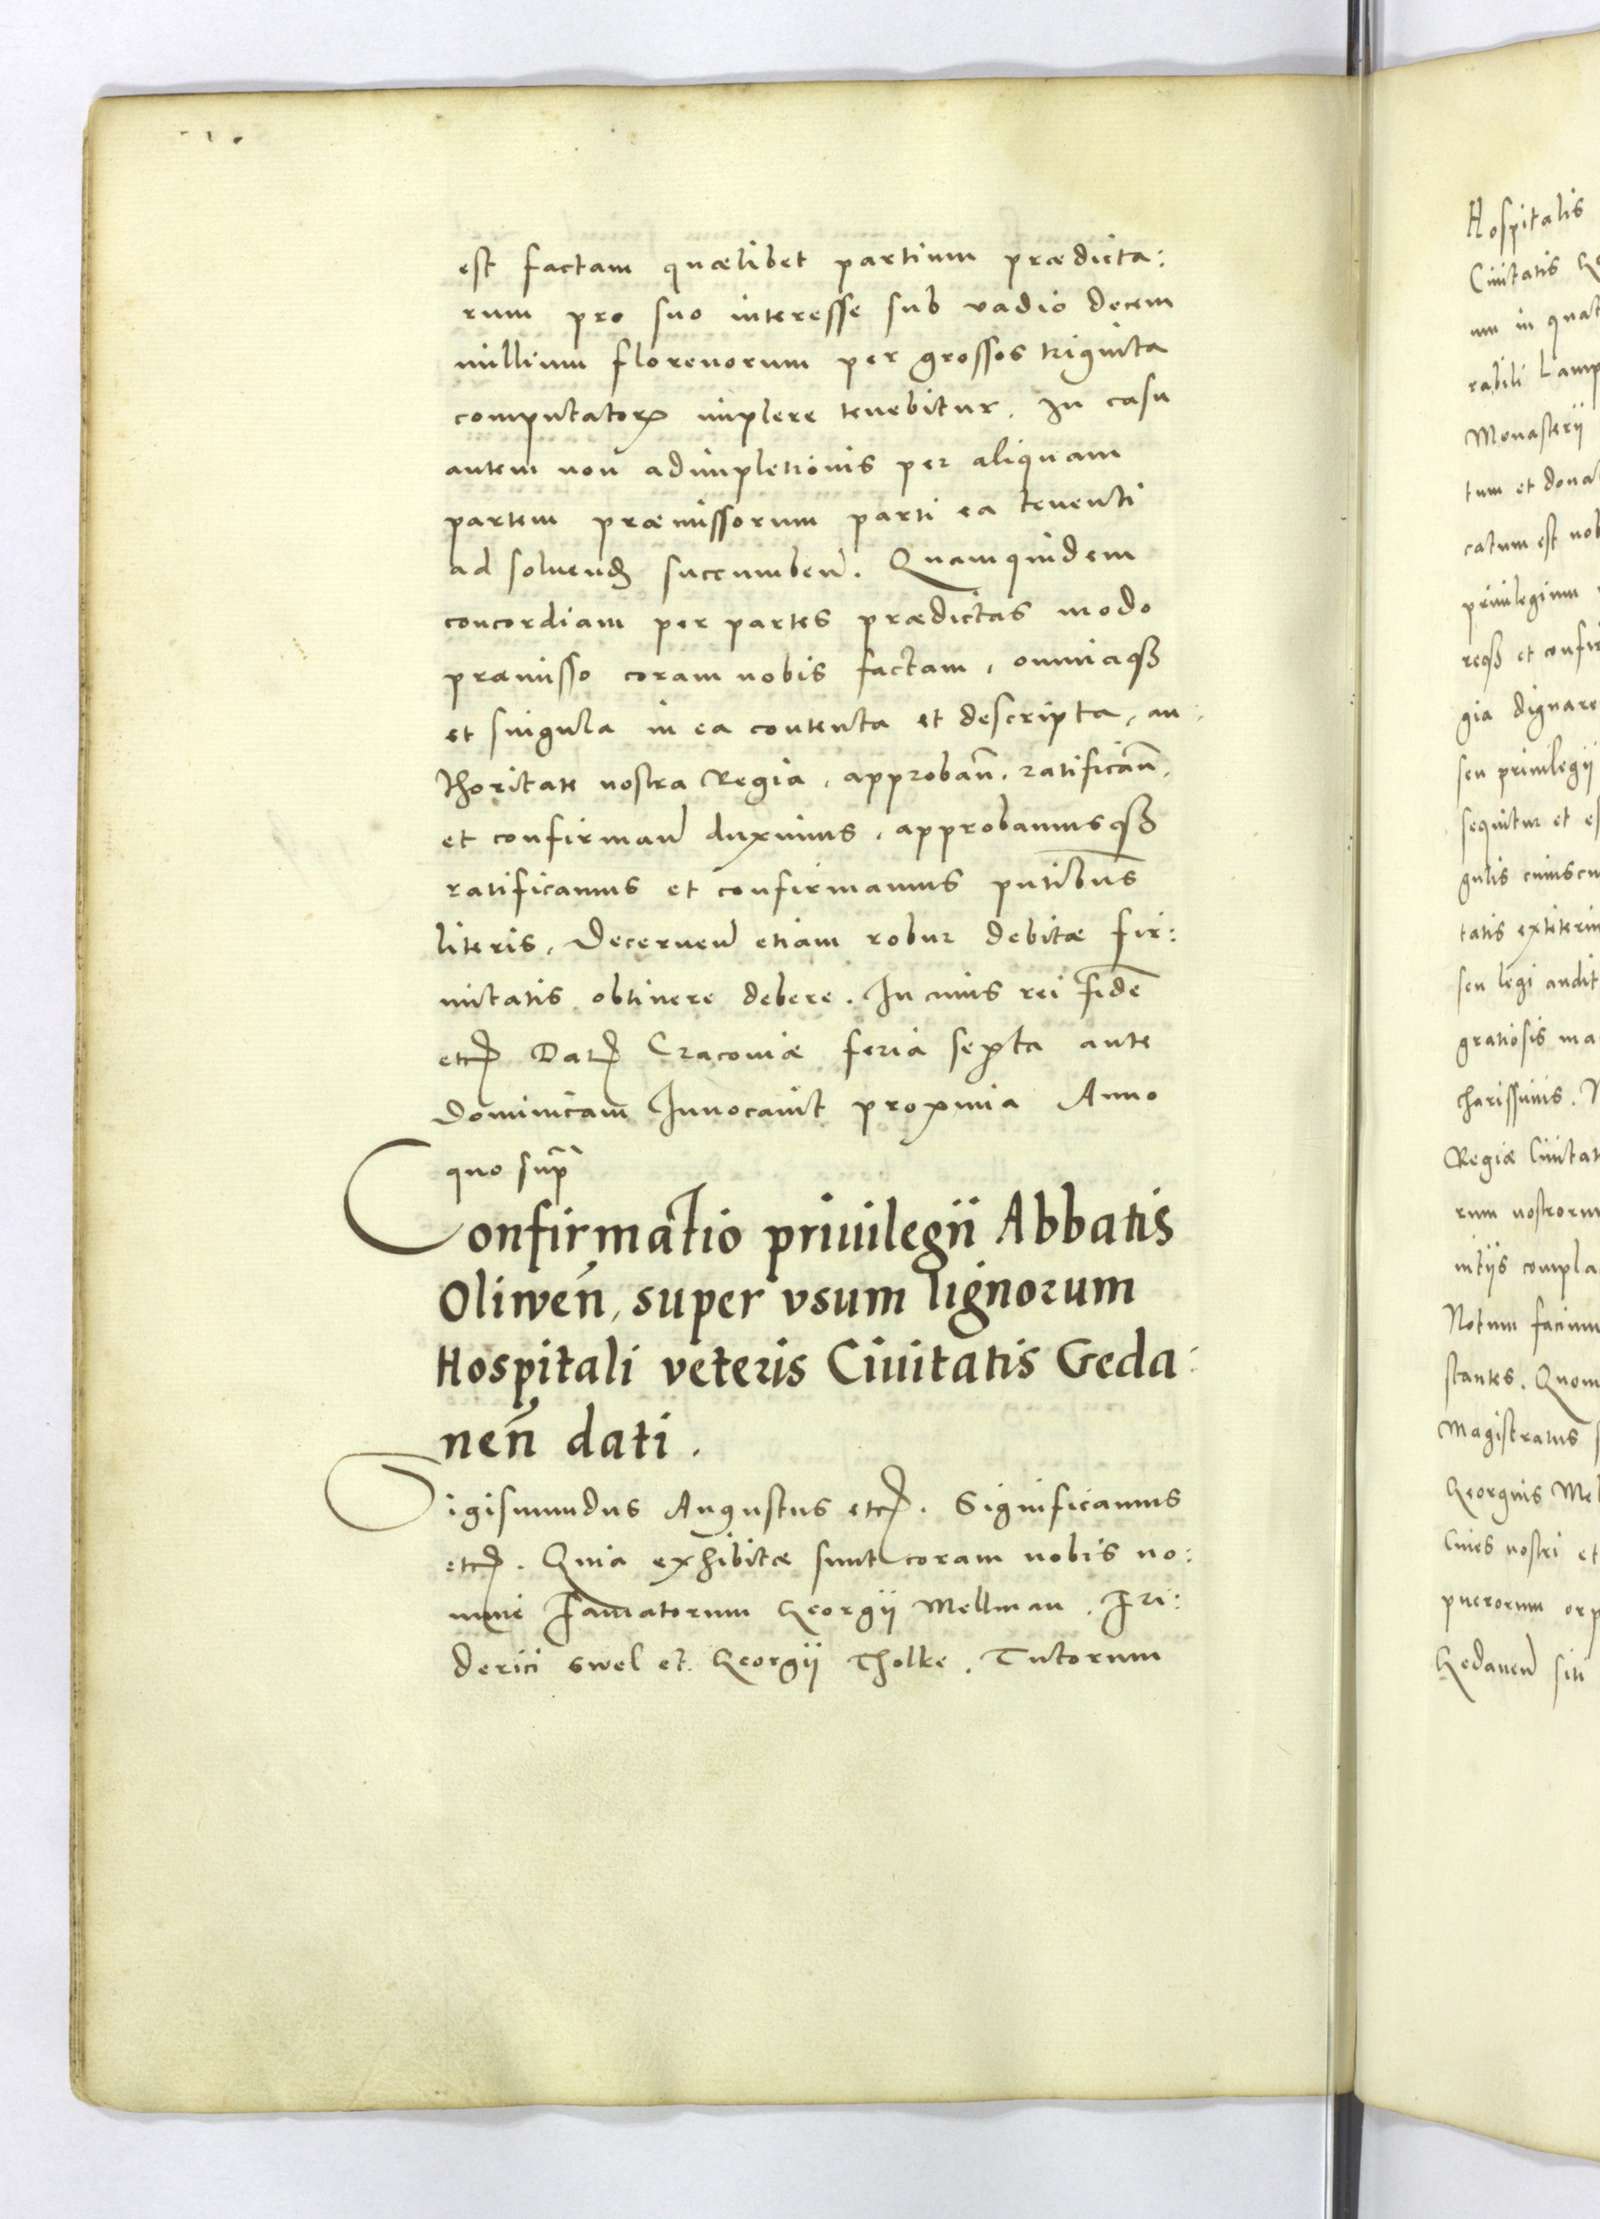 est factam quælibet partium prædicta:
rum pro suo interesse sub vadio decem
millium florenorum per grossos triginta
computatorꝝ implere tenebitur. In casu
autem non adimpletionis per aliquam
partem præmissorum parti ea tenenti
ad soluendꝭ succumben̄. Quamquidem
concordiam per partes prædictas modo
præmisso coram nobis factam, omniaqꝫ
et singula in ea contenta et descripta, au:
thoritate nostra Regia, approban̄, ratifican̄,
et confirman̄ duximus, approbamusqꝫ
ratificamus et confirmamus pn̄tibus
literis, Decernen̄ etiam robur debitæ fir:
mitatis obtinere debere. In cuius rei fidē
etcꝭ Datꝭ Cracoviæ feria sexta ante
Dominicam Inuocauit proxima Anno
quo sup̄
Confirmatio priuilegii Abbatis
Oliwen̄, super vsum lignorum
Hospitali veteris Ciuitatis Geda:
nen̄ dati.
Sigismundus Augustus etcꝭ. Significamus
etcꝭ. Quia exhibitæ sunt coram nobis no:
mine Famatorum Georgii Mellman, Fri:
derici Swel et Georgii Tholke, Tutorum
Hospitalis
Ciuitatis
um in
rabili
Monasterij
tum et
catum est
priuilegium
reqꝫ et
gia
seu priuilegij
sequitur et
gulis
tatis
seu legi
gratiosis
charissimis.
Regiæ
rum
nitijs
Notum
stantes.
Magistratus
Georgius
Ciues nostri et
puerorum
Gedanen̄ siti